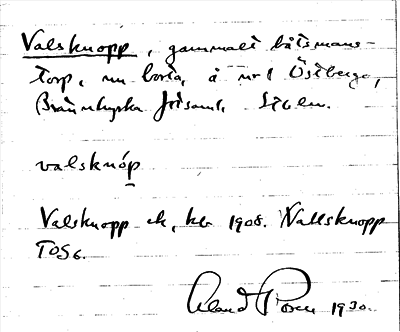 Valsknopp, gammalt båtsmans-
torp, nu borta, å nr 1 Östberga,
Brännkyrka förs:aml. Sthlm.
valsknóp
Valsknopp ek, kb 1908. Vallsknopp
TOS6.
1930.